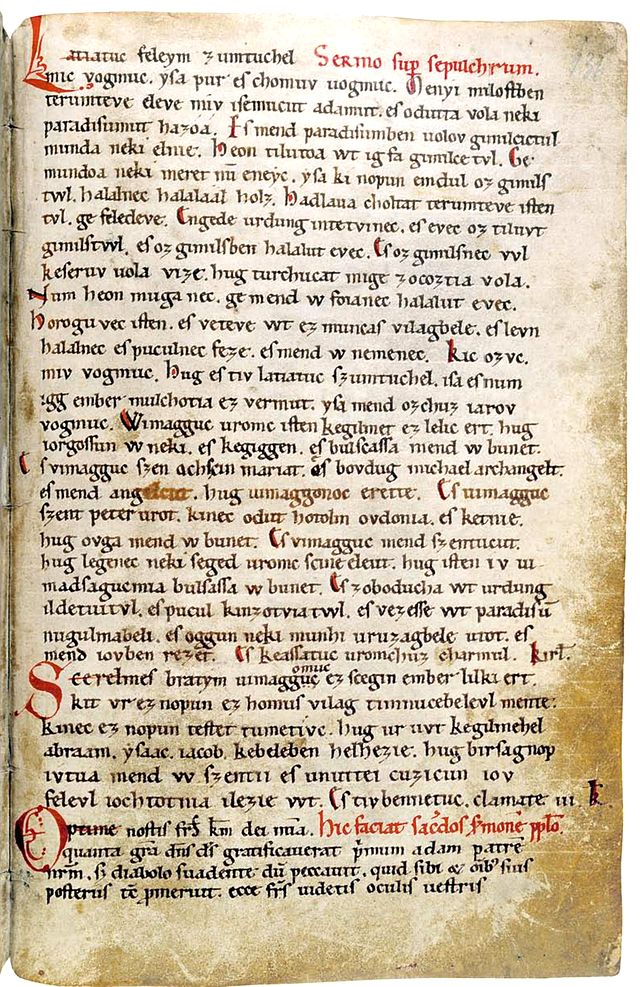 Latiatuc feleym zumtuchel Sermo sup sepulchrum.
mic vogmuc. ysa pur es chomuv uogmuc. Menyi milostben
terumteve eleve miv isemucut adamut. es odutta vola neki
paradisumut hazoa. Es mend paradisumben uolov gimilcictul
munda neki elnie. Heon tilutoa wt ig fa gimilce tvl. Ge
mundoa neki meret nū eneyc. ysa ki nopun emdul oz gimils
twl. halalnec halalaal holz. Hadlaua choltat terumteve isten
tvl. ge feledeve. Engede urdung intetvinec. es evec oz tiluvt
gimilstwl. es oz gimilsben halalut evec. Es oz gimilsnec vvl
keseruv uola vize. hug turchucat mige zocoztia vola.
Num heon muga nec. ge mend w foianec halalut evec.
Horogu vec isten. es veteve wt ez muncas vilagbele. es levn
halalnec es puculnec feze. es mend w nemenec. Kic ozvc.
miv vogmuc. Hug es tiv latiatuv szumtuchel. isa es num
igg ember mulchotia ez vermut. ysa mend ozchuz iarov
vogmuc. Wimagguc uromc isten kegilmet ez lelic ert. hug
iorgossun w neki. es kegiggen. es bulsassa mend w bunet.
Es vimagguc szen achscin mariat. es bovdug michael archangelt.
es mend angelcut. hug uimaggonoc erette. Es uimagguc
szent peter urot. kinec odut hotolm ovdonia. es ketnie.
hug ovga mend w bunet. Es vimagguc mend szentucut.
hug legenec neki seged uromc scine eleut. hug isten iv ui
madsagucmia bulsassa w bunet. Es zoboducha wt urdung
ildetuitvl. es pucul kinzotviatwl. es vezesse wt paradisū
nugulmabeli. es oggun neki munhi uruzagbele utot. es
mend iovben rezet. Es keassatuc uromchuz charmul. Kirł.
Scerelmes bratym uimagg omuc ez scegin ember lilki ert.
kit vr ez nopun ez homus vilag timnucebelevl mente.
kinec ez nopun testet tumetivc. hug ur uvt kegilmehel
abraam. ysaac. iacob. kebeleben helhezie. hug birsagnop
ivtva mend w szentii es unuttei cuzicun iov
felevl iochtotnia ilezie wt. Es tiv bennetuc. clamate iii. K.
Optime nostis frs̄ km̄ dei mīa. hic faciat sac̄dos sermonē pplo.
quanta grā dn̄s ds̄ gratificauerat p̄mum adam patrē
nr̄m. s; diabolo suadente dū peccauit. quid sibi & omīb; suis
posteris tē p̄meruit. ecce fr̄s videtis oculis uestris